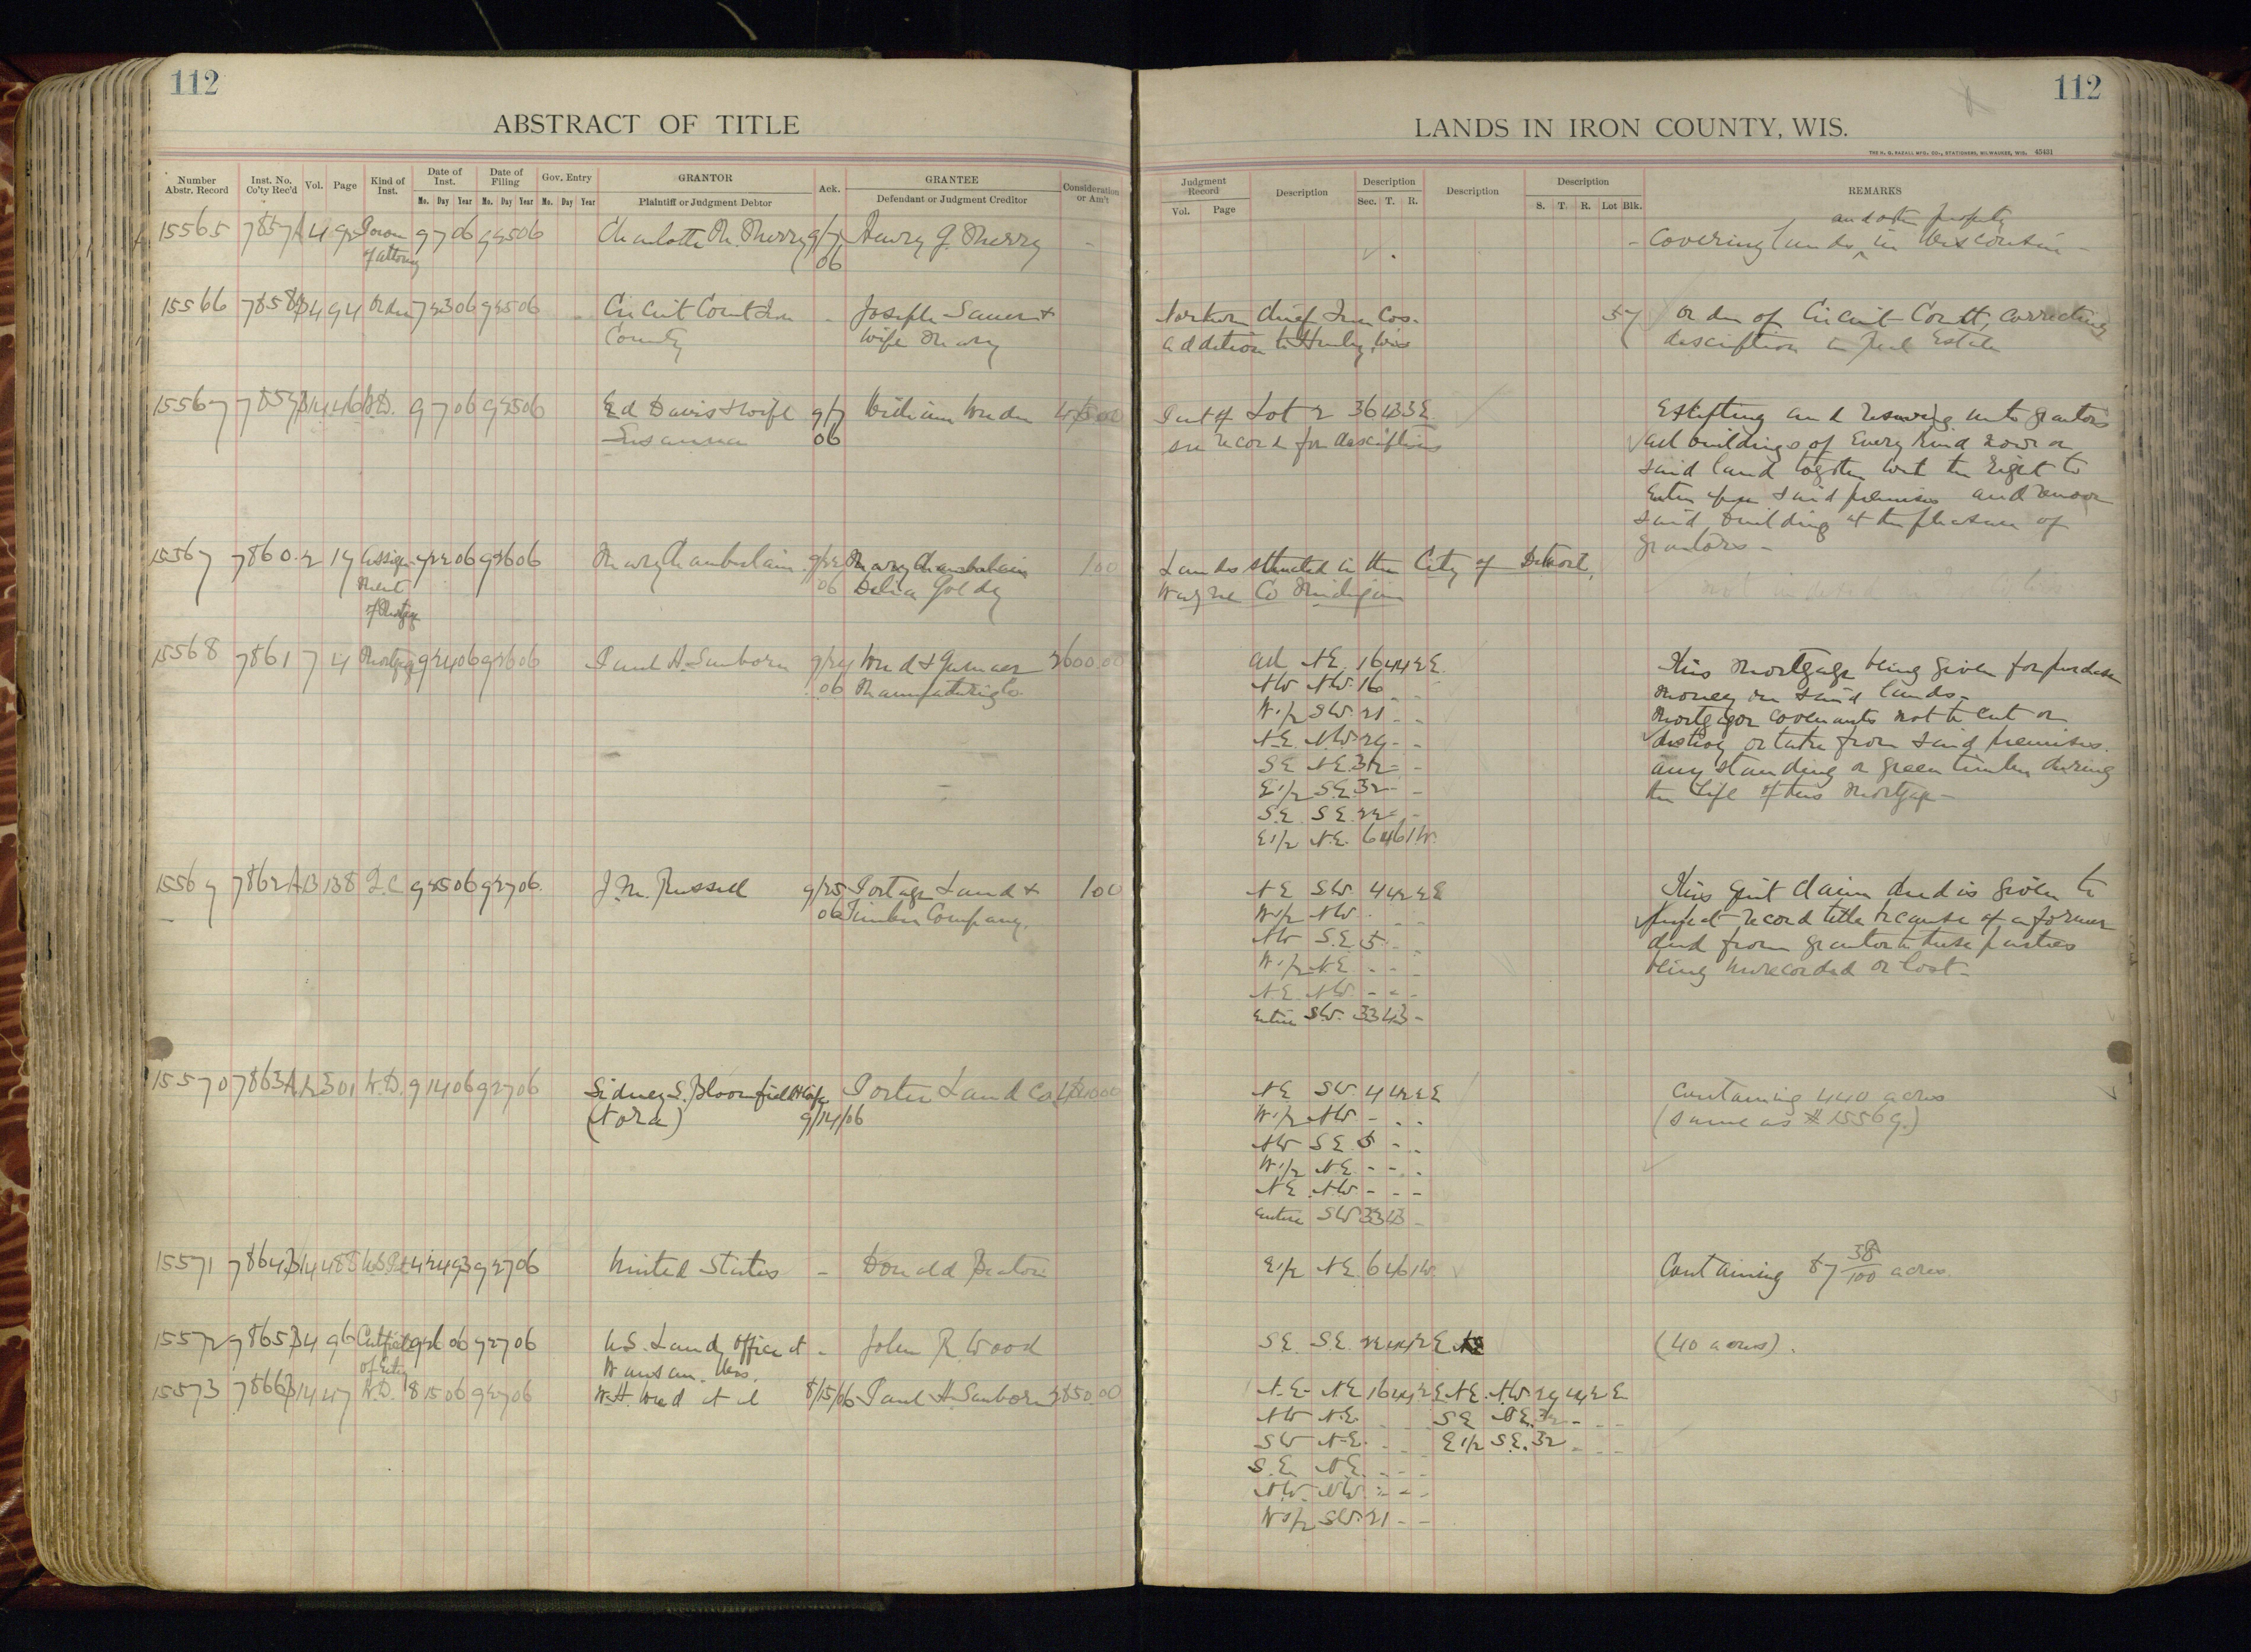 112
ABSTRACT OF TITLE
Number Abstr. Record
Inst. No. Co'ty Rec'd
Vol.
Page
Kind of Inst.
Date of Inst.
Date of Filing
Gov. Entry
GRANTOR
Ack.
GRANTEE
Consideration or Am't
Mo. Day Year Mo. Day Year Mo. Day Year
Plaintiff or Judgment Debtor
Defendant or Judgment Creditor
15565 7857 Power 9 7 06 9 25 06 Charlotte M. Sherry 9/7 Henry G. Sherry -
of Attorney 06
15566 7858 94 Order 7 23 06 9 25 06 - Circuit Court Iron - Joseph Sauer +
County wife Mary
15567 7859 446 W.D. 9 7 06 9 25 06 Ed Davis + wife 9/7 William
Susanna 06
15567 7860 2 17 Assign- 9 22 06 9 26 06 Mary Chamberlain 9/22 Mary Chamberlain 100
ment 06 Delia
of Mortgage
15568 7861 7 4 Mortgage 9 24 06 9 26 06 Paul H. Sanborn 9/24 2600.00
06 Manufacturing Co.
15569 7862 A13 138 Q.C. 9 25 06 9 27 06 J. M. Russell 9/25 Portage Land + 100
06 Timber Company.
15570 7863 301 W.D. 9 14 06 9 27 06 Sidney S. Bloomfield + wife Porter Land Co.
(Nora) 9/14/06
15571 7864 488 U.S. Pat 4 24 93 9 27 06 United States - Donald Beaton
15572 7865 96 Certificate 06 9 27 06 U.S. Land Office at - John R. Wood
of Entry Wausau. Wis.
15573 7866 W.D. 8 15 06 9 27 06 W.H. et al 8/15/06 Paul H. Sanborn 2850.00
112
LANDS IN IRON COUNTY, WIS.
THE H. G. RAZALL MFG. CO., STATIONERS, MILWAUKEE, WIS. 45431
Judgment Record
Description
Description
Description
Description
REMARKS
Vol. Page
Sec. T. R.
S. T. R. Lot Blk.
and other property
- Covering lands in Wisconsin -
Northern Chief Iron Cos. 57 Order of Circuit Court, correcting
addition to Hurley, Wis description in Real Estate
Part of Lot 2 36 43 3E Excepting and reserving unto grantors
see record for description all buildings of every kind now on
said land together with the right to
enter upon said premises and remove
said building at the pleasure of
grantors -
Lands situated in the City of Detroit,
Wayne Co Michigan
All NE. 16 44 2E. This Mortgage being given for purchase
NW NW. 16 - - money on said lands -
W.1/2 SW. 21 - - Mortgagor covenants not to cut or
N.E. N.W. 29 - - destroy or take from said premises.
SE NE. 32 - - any standing or green timber during
E1/2 S.E. 32 - - the life of this Mortgage -
S.E. S.E. 22 - -
E1/2 N.E. 6 46 1W.
NE SW. 4 42 2E This quit claim deed is given to
W1/2 NW. - - perfect record title because of a former
NW S.E. 5 - - deed from grantor to these parties
W.1/2 N.E - - - being unrecorded or lost -
N.E. NW. - - -
Entire SW. 33 43 -
NE SW. 4 42 2E Containing 440 acres
W.1/2 NW - - - (same as # 15569.)
NW SE 5 - -
W.1/2 NE. - - -
NE NW. - - -
entire SW 33 43 -
E1/2 NE. 6 46 1W. Containing 87 38/100 acres.
S.E. S.E. 22 44 2E (40 acres).
N.E. NE 16 44 2E NE. NW. 29 44 2E
NW N.E. - - SE NE. 32 - - -
SW N.E. - - E1/2 S.E. 32 - - -
S.E. NE. - - -
N.W. NW. - - -
W1/2 SW. 21 - -